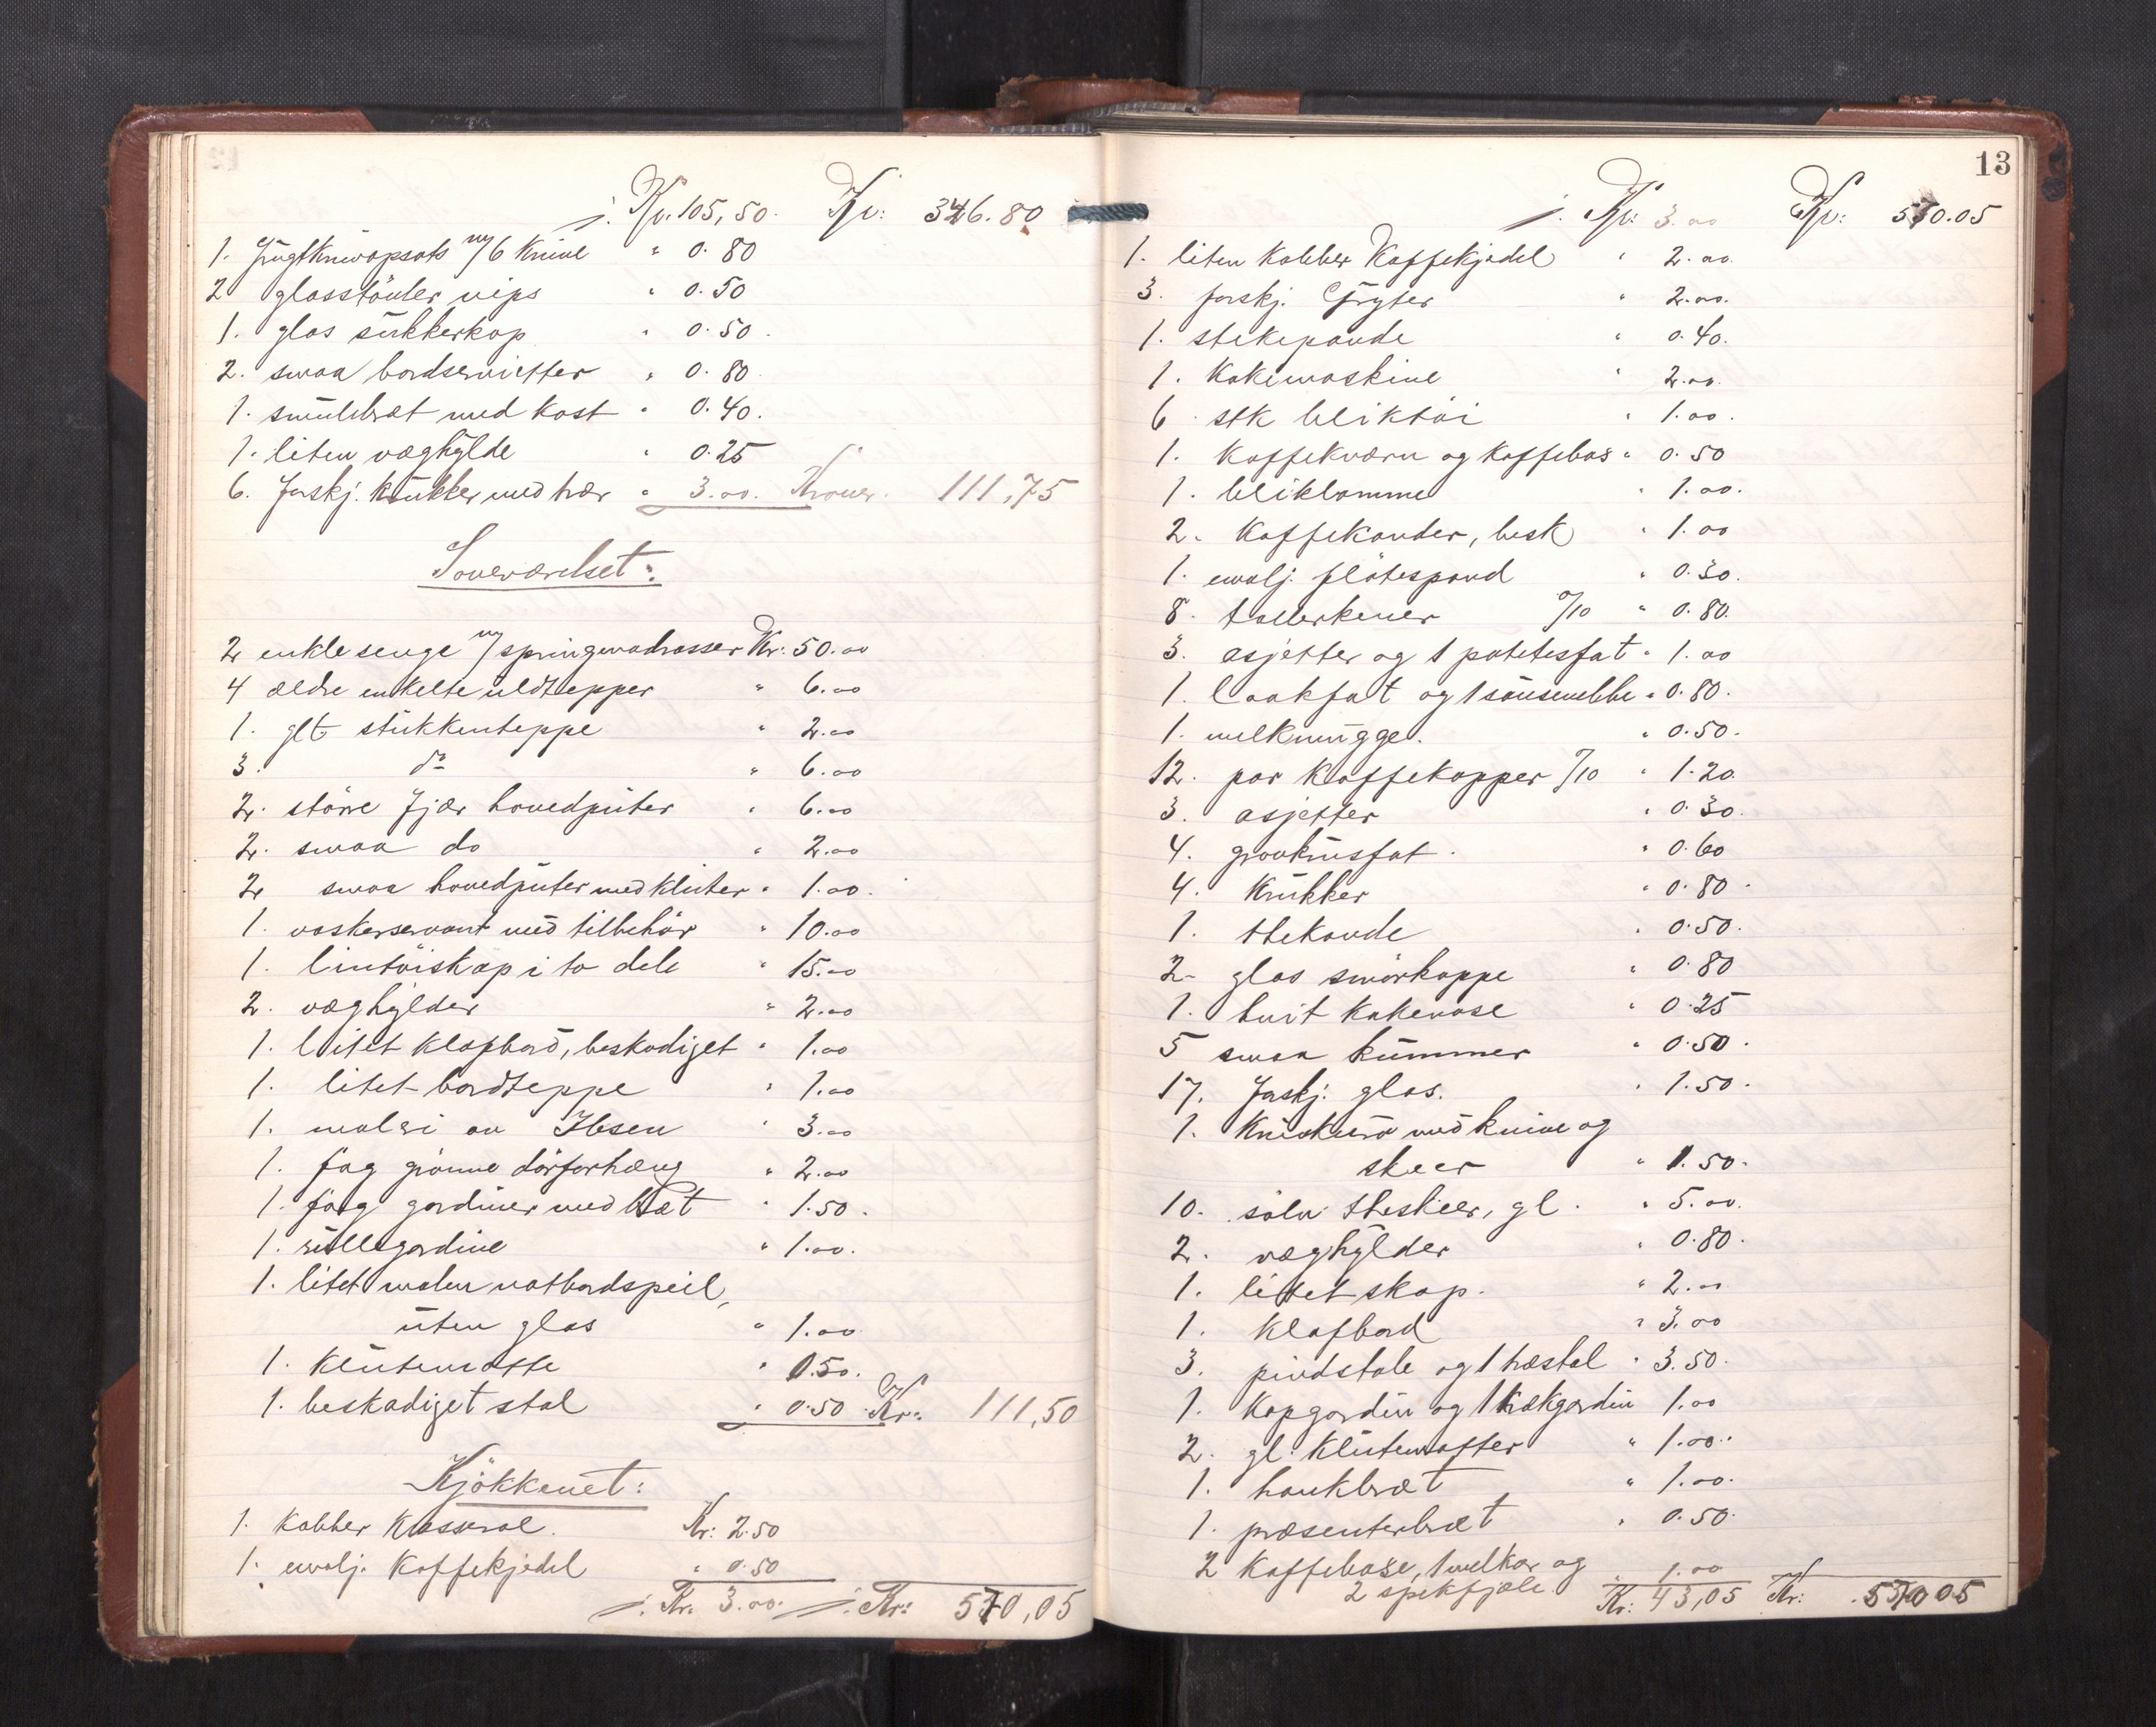 j. Kr. 105,50. Kr: 346.80
1. Frugtknivopsats m/6 knive " 0.80
2 glasstöuler nips " 0.50
1. glas sukkerkop " 0.50.
2. smaa bordservietter " 0.80
1. smulebræt med kost " 0.40.
1. liten væghylde " 0.25
6. forskj. krukker med trær " 3.00. Kroner. 111,75
Soveværelset:
2 enkle senge m/springmadrasser Kr: 50.00
4 ældre enkelte uldtepper " 6.00
1. glt stukkenteppe " 2.00
3. do " 6.00
2. större fjær hovedputer " 6.00
2. smaa do " 2.00
2 smaa hovedputer med kluter " 1.00.
1. vaskeservant med tilbehör " 10.00
1. lintöiskap i to dele " 15.00
2. væghylder " 2.00
1. litet klapbord, beskadiget " 1.00
1. litet bordteppe " 1.00
1. maleri av Ibsen " 3.00
1. fag grönne dörforhæng " 2.00
1. fag gardiner med bræt " 1.50.
1. rullegardine " 1.00.
1. litet malen natbordspeil,
uten glas " 1.00
1. klutematte " 0.50.
1. beskadiget stol " 0.50 Kr: 111,50
Kjökkenet:
1. kobber kasserol. Kr: 2.50
1. emalj. Kaffekjedel " 0.50
j. Kr. 3.00. j. Kr: 570,05
13
j. Kr: 3.00 Kr: 570.05
1. liten kobber Kaffekjedel " 2.00.
3. forskj. Gryter " 2.00.
1. stekepande " 0.40.
1. Kokemaskine " 2.00.
6 stk bliktöi " 1.00.
1. Kaffekværn og Kaffebøs " 0.50
1. bliklomme " 1.00.
2. Kaffekander, besk " 1.00
1. emalj. flötespand " 0.30.
8. tallerkener 0/10 " 0.80.
3. asjetter og 1 potetesfat " 1.00
1. Laakfat og 1 sausenebbe " 0.80.
1. melkmugge. " 0.50.
12. par Kaffekopper 0/10 " 1.20.
3. asjetter " 0.30.
4. grovkrusfat. " 0.60
4. Krukker " 0.80.
1. thekande " 0.50.
2- glas smörkoppe " 0.80
1. hvit Kakevase " 0.25
5 smaa kummer " 0.50.
17. forskj. glas. " 1.50.
1. Knivkurv med knive og
skeer " 1.50.
10. sölv theskeer, gl. " 5.00.
2. væghylder " 0.80.
1. litet skap. " 2.00
1. Klapbord " 3.00
3. pindstole og 1 træstol " 3.50.
1. Kapgardin og 1 trækgardin 1.00
2. gl. Klutematter " 1.00.
1. hankbræt " 1.00.
1. præsenterbræt " 0.50.
2 Kaffebøse, 1 melkar og 1.00
2 spekfjæle. Kr: 43,05 Kr: 570 05